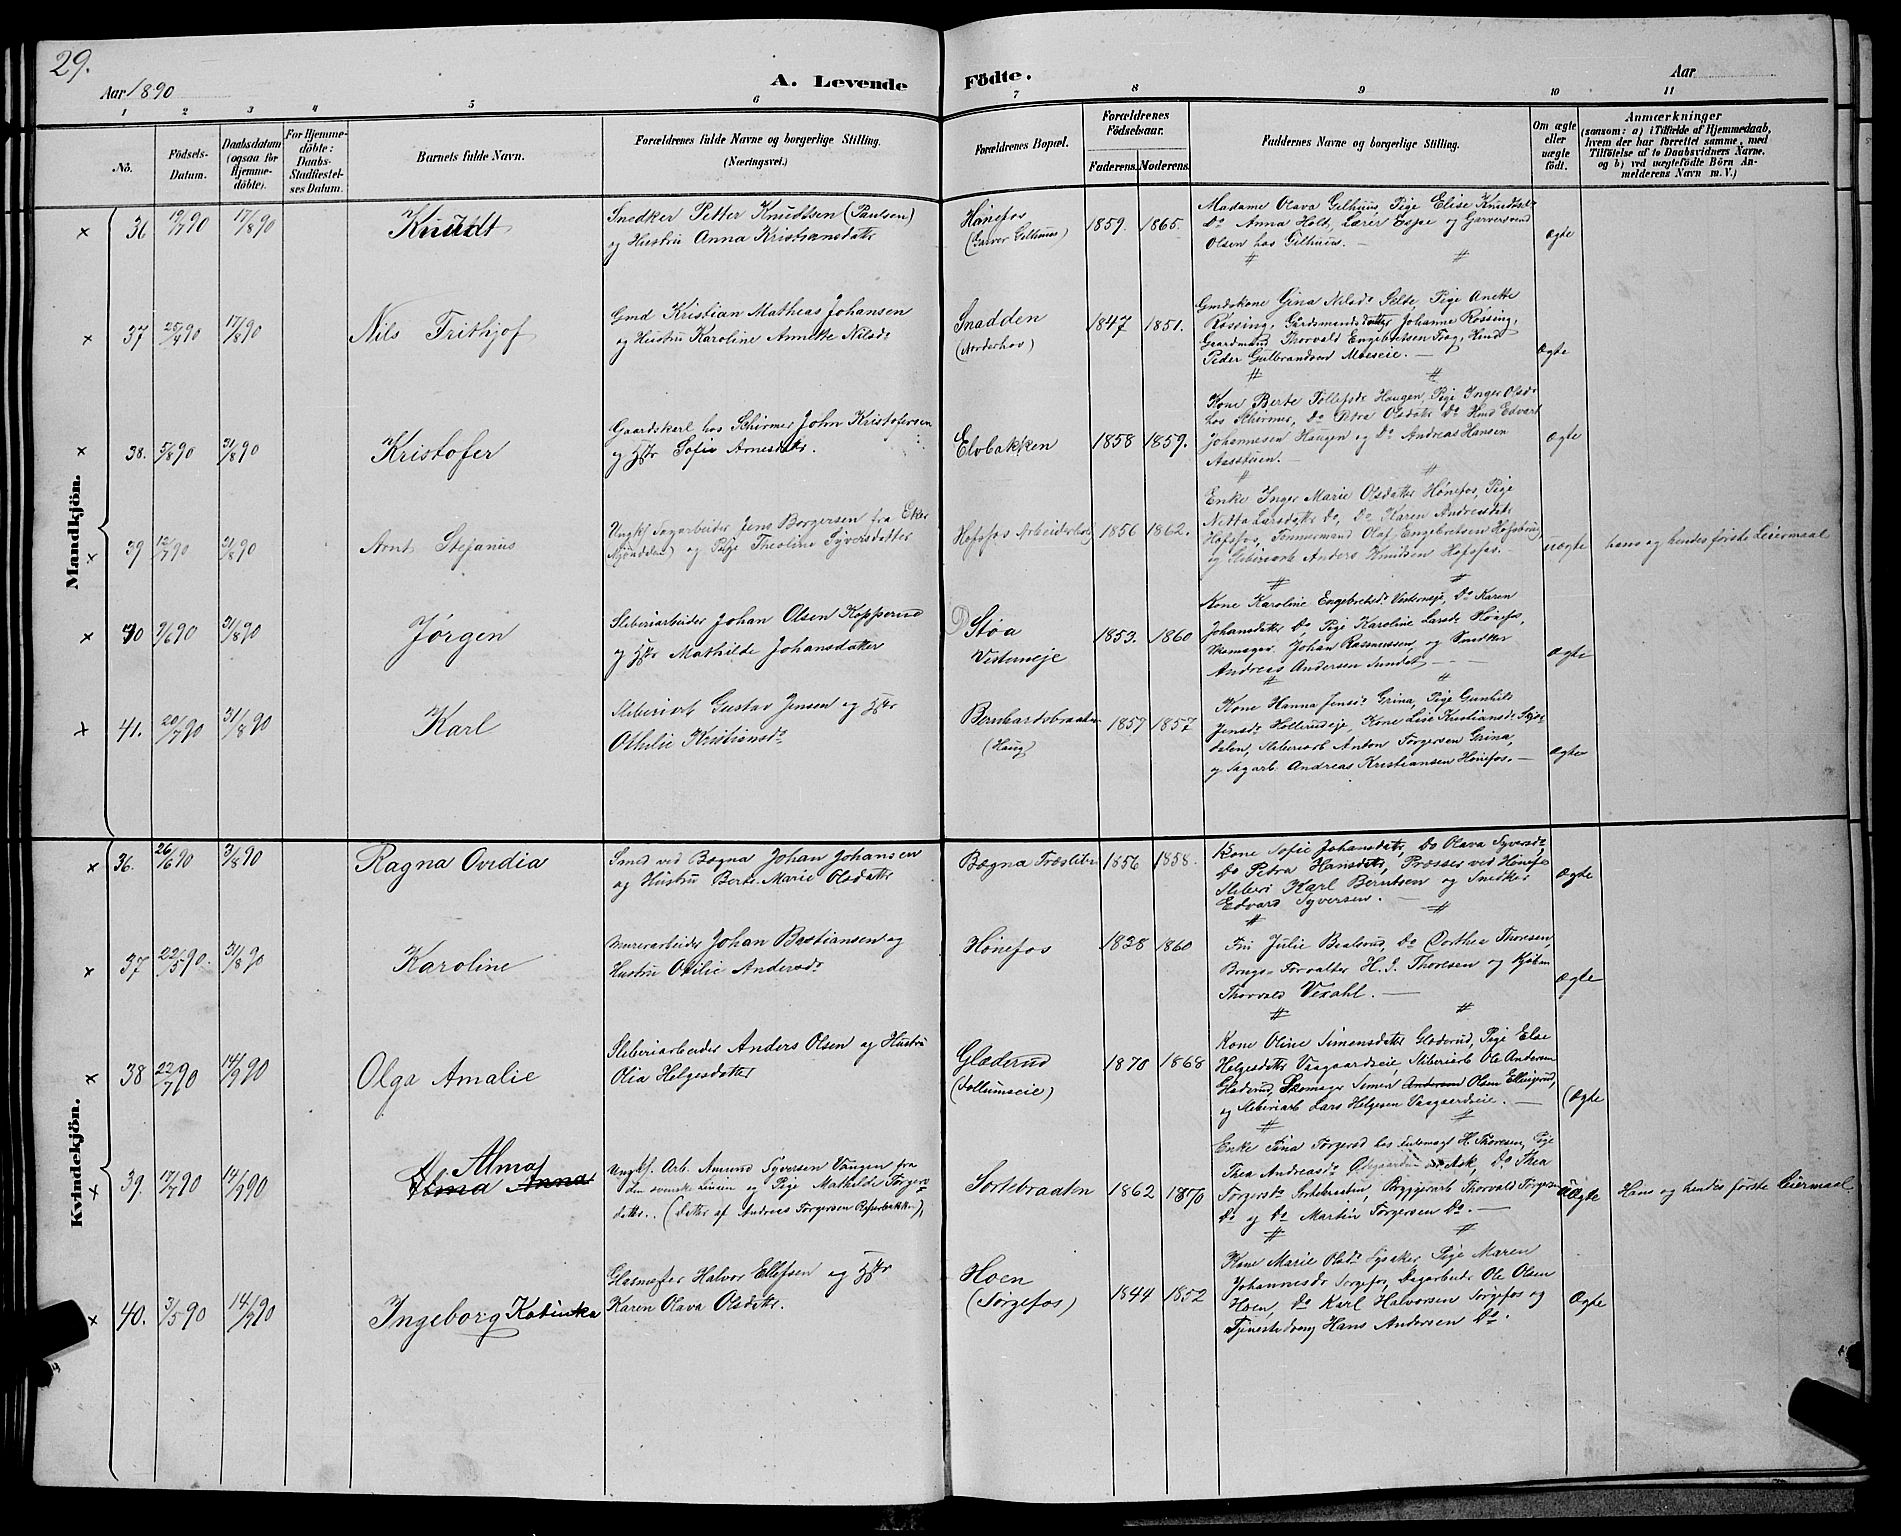 29.
Aar 1890
A. Levende Födte.
Aar
1 2 3 4 5 6 7 8 9 10 11
No.
Födsels-Datum.
Daabsdatum (ogsaa for Hjemme-döbte).
For Hjemme-döbte: Daabs-Stadfæstel-ses Datum.
Barnets fulde Navn.
Forældrenes fulde Navne og borgerlige Stilling. (Næringsvei.)
Forældrenes Bopæl.
Forældrenes Födselsaar.
Faderens. Moderens.
Faddernes Navne og borgerlige Stilling.
Om ægte eller uægte födt.
Anmærkninger
(saasom: a) i Tilfælde af Hjemmedaab, hvem der har forrettet samme, med Tilföielse af to Daabsvidners Navne. og b) ved uægtefödte Börn An-melderens Navn m. V.)
Mandkjön.
× 36 19/7 90 17/8 90 Knudt
Snedker Petter Knudtsen (Paulsen)
og Hustru Anna Kristiansdatter
Hønefos
(Garver Gilhuus)
1859. 1865.
Madame Olava Gilhuus, Pige Elise Knudtsdr
Do Anna Holt, Lærer Espe og Garversvend
Olsen hos Gilhuus. —
Ægte
× 37 25/4 90 17/8 90 Nils Trithjof
Gmd Kristian Mathias Johansen
og Hustru Karoline Annette Nilsdr
Snadden
(Norderhov)
1847 1851.
Gmdskone Gina Nilsdr Selte, Pige Anette
Røssing, Gårdsmandsdatter Johanne Røssing,
Gaardmand Thorvald Engebretsen Trøg, Hind
Peder Gulbrandsend Moeseie. —
Ægte
× 38. 5/8 90 31/8 90 Kristofer
Gaardskarl hos Schirmer John Kristofersen
og Hstr Sofie Arnesdatr.
Elvbakken
1858 1859.
Kone Berte Tollefsdr Haugen, Pige Inger Olsdr
hos Schirmer, Do Petra Olsdatr Do Hind Edvart
Johannesen Haugen og Do Andreas Hansen
Aasstuen. —
Ægte
× 39 12/7 90 31/8 90 Arnt Stefanus
Ungkf Sagarbeider Jens Borgersen fra Eker
og Pige Theoline Syversdatter
Hofsfos Arbeiderbol
1856 1862.
Enke Inger Marie Olsdatter Hønefos, Pige
Larsdatter Do, Do Karen Andreasdatr
Hofsfos, Tømmermand Olaf Engebretsen Hofsbrug
og Sliberiarb Anders Knudsen Hofsfos. —
Uægte
hans og hendes første Leiermaal
× 40 9/6 90 31/8 90 Jørgen
Sliberiarbeider Johan Olsen Kopperud
og Hstr Mathilde Johansdatter
Støa
Vesterneje
1853. 1860
Kone Karoline Engebretsdr Vesterneje, Do Karen
Johansdatter Do, Pige Karoline Larsdr Hønefos,
Skomager Johan Rasmussen og Snedker
Andreas Andersen Sundet —
Ægte
× 41. 20/7 90 31/8 90 Karl
Sliberiarb Gustav Jensen og Hstr
Othilie Kristiansdr
Bernhardsbraaten
(Haug)
1857 1857
Kone Hanna Jensdr Grina, Pige Gunhild
Jensdr Hollerudeje, Kone Lise Kristiansdr
dalen, Sliberiarb Anton Torgersen Grina,
og Sagarb. Andreas Kristiansen Hønefos. —
Ægte
Kvindekjön.
× 36. 26/6 90 3/8 90 Ragna Ovidia
Smed ved Bægna Johan Johansen
og Hustru Berte Marie Olsdatr
Bægna Træsliberi
1856 1858.
Kone Sofie Johansdatr, Do Olava Syversdr,
Do Petra Hansdatr, Presser ved Hønefos
Sliberi Karl Berntsen og Snedker
Edvard Syversen. —
Ægte
× 37 22/5 90. 31/8 90 Karoline
Murerarbeider Johan Bastiansen og
Hustru Otilie Andersdr
Hønefos
1828 1860
Frk Julie Bealsrud, Do Dorthea Thoresen,
Brugs-Forvalter H. J. Thoresen og Kjøbm
Thorvald Vexahl. —
Ægte
× 38 22/7 90 14/9 90 Olga Amalie
Sliberiarbeider Anders Olsen og Hustru
Olia Helgesdatter
Glæderud
(Follumseie)
1870 1868
Kone Oline Simensdatter Gladerud, Pige Else
Helgesdatter Vaagaardseie, Sliberiarb Ole Andersen
Gladerud, Skomager Simen Andersen Olsen Ellingsrud,
og Sliberiarb Lars Helgesen Vaagaardseie. —
Ægte
× 39. 17/7 90 14/9 90 Alma
Alma Anna
Ungkf. Arb. Amund Syversen Vangen fra
og Pige Mathilde Torgers-
datter. (Datter af Andreas Torgersen)
Sortebraaten
1862 1870
Enke Tina Torgersd hos H. Thoresen, Pige
Thea Andreasdr Ask, Do Thea
Torgersdr Sortebraaten, Bryggeriarb Thorvald Torgersen
Do og Do Martin Torgersen Do. —
Uægte
Hans og hendes første Leiermaal
× 40. 3/5 90 14/9 90 Ingeborg Katinka
Glasmester Halvor Ellefsen og Hstr
Karen Olava Olsdatr.
Hoen
(Sørgefos)
1844 1852
Kone Marie Olsdr Lysaker, Pige Maren
Johannesdr Sørgefos, Dagarbeider Ole Olsen
Hoen, Do Karl Halvorsen Sørgefos og
Tjenestedreng Hans Andersen Do.
Ægte